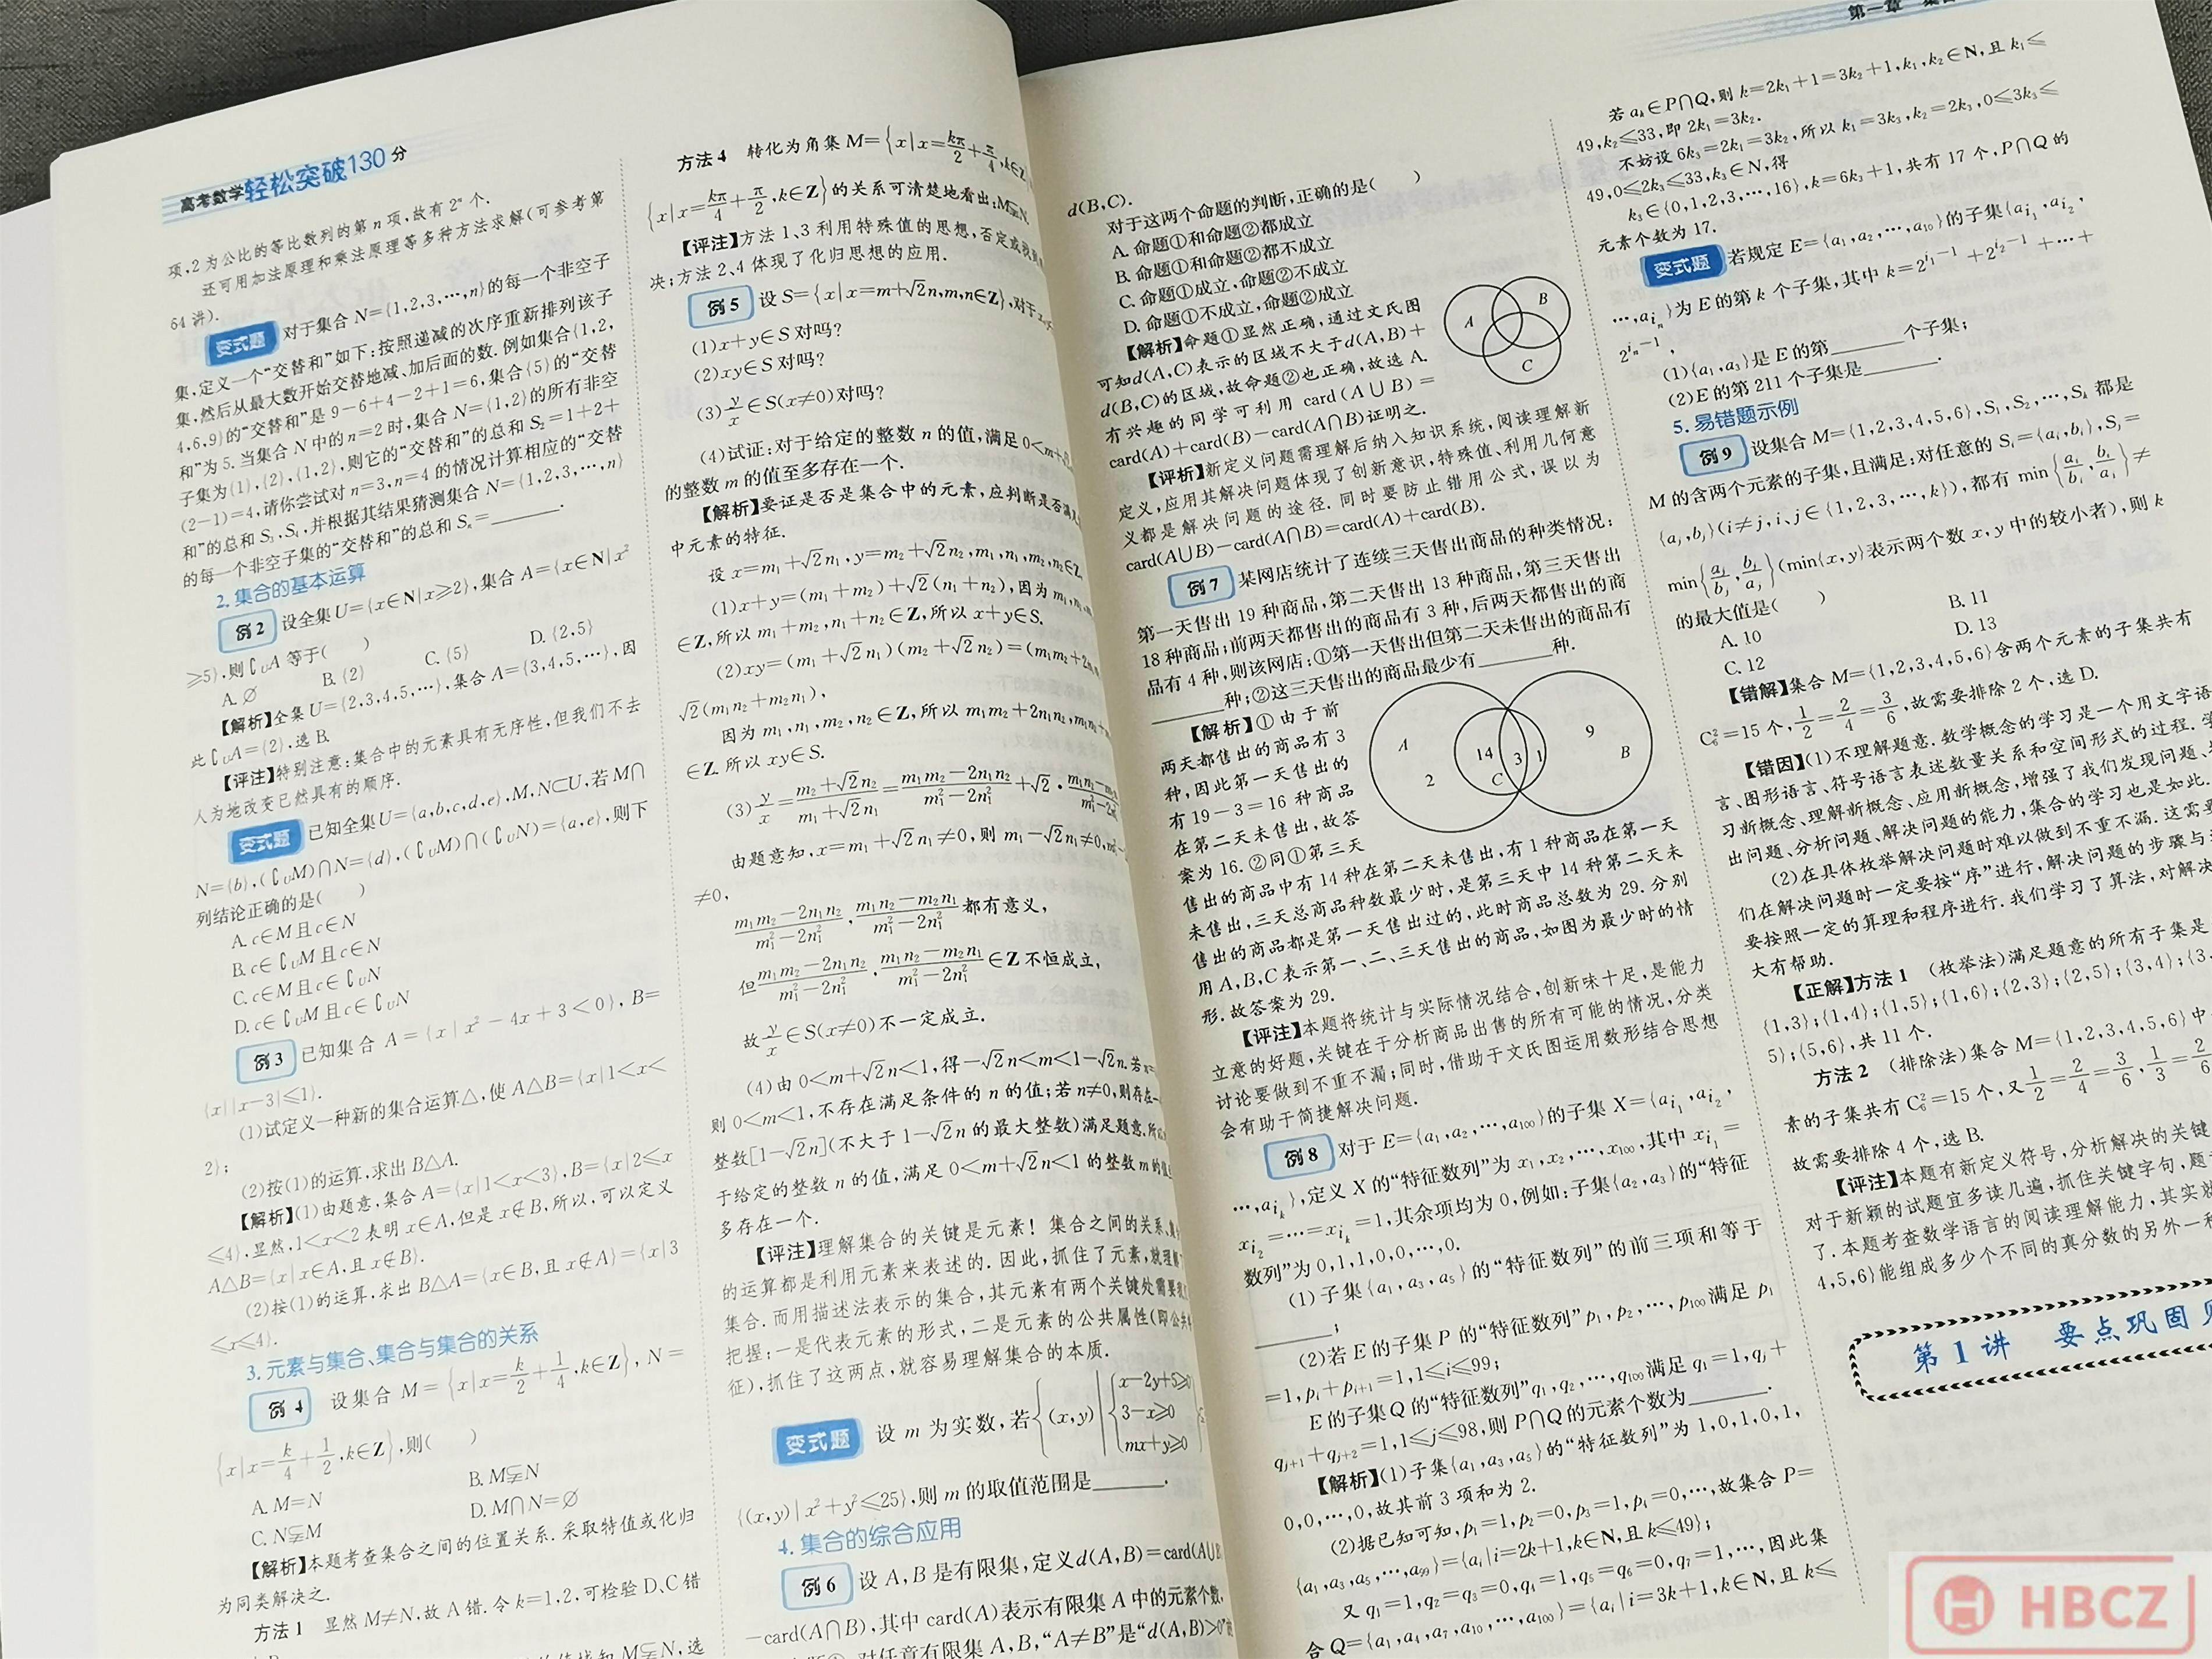 高考数学轻松突破130分
项,2为公比的等比数列的第n项,故有2ⁿ个.
还可用加法原理和乘法原理等多种方法求解(可参考第
64讲).
变式题 对于集合N={1,2,3,…,n}的每一个非空子
集,定义一个“交替和”如下:按照递减的次序重新排列该子
集,然后从最大数开始交替地减、加后面的数.例如集合{1,2,
4,6,9}的“交替和”是9-6+4-2+1=6,集合{5}的“交替
和”为5.当集合N中的n=2时,集合N={1,2}的所有非空
子集为{1},{2},{1,2},则它的“交替和”的总和S₂=1+2+
(2-1)=4,请你尝试对n=3,n=4的情况计算相应的“交替
和”的总和S₃,S₄,并根据其结果猜测集合N={1,2,3,…,n}
的每一个非空子集的“交替和”的总和Sₙ=______.
2.集合的基本运算
例2 设全集U={x∈N|x≥2},集合A={x∈N|x²
≥5},则∁ᵤA等于( )
A.∅ B.{2} C.{5} D.{2,5}
【解析】全集U={2,3,4,5,…},集合A={3,4,5,…},因
此∁ᵤA={2},选B.
【评注】特别注意:集合中的元素具有无序性,但我们不去
人为地改变已然具有的顺序.
变式题 已知全集U={a,b,c,d,e},M,N⊂U,若M∩
N={b},(∁ᵤM)∩N={d},(∁ᵤM)∩(∁ᵤN)={a,e},则下
列结论正确的是( )
A.c∈M且c∈N
B.c∈∁ᵤM且c∈N
C.c∈M且c∈∁ᵤN
D.c∈∁ᵤM且c∈∁ᵤN
例3 已知集合A={x|x²-4x+3<0},B=
{x||x-3|≤1}.
(1)试定义一种新的集合运算△,使A△B={x|1<x<
2};
(2)按(1)的运算,求出B△A.
【解析】(1)由题意,集合A={x|1<x<3},B={x|2≤x
≤4},显然,1<x<2表明x∈A,但是x∉B,所以,可以定义
A△B={x|x∈A,且x∉B}.
(2)按(1)的运算,求出B△A={x∈B,且x∉A}={x|3
≤x≤4}.
3.元素与集合、集合与集合的关系
例4 设集合M={x|x=k/2+1/4,k∈Z},N=
{x|x=k/4+1/2,k∈Z},则( )
A.M=N B.M⫋N
C.N⫋M D.M∩N=∅
【解析】本题考查集合之间的位置关系.采取特值或化归
为同类解决之.
方法1 显然M≠N,故A错.令k=1,2,可检验D、C错
方法4 转化为角集M={x|x=kπ/2+π/4,k∈Z}
{x|x=kπ/4+π/2,k∈Z}的关系可清楚地看出:M⫋N.
【评注】方法1、3利用特殊值的思想,否定或
决;方法2、4体现了化归思想的应用.
例5 设S={x|x=m+√2n,m,n∈Z},对于
(1)x+y∈S对吗?
(2)xy∈S对吗?
(3)y/x∈S(x≠0)对吗?
(4)试证:对于给定的整数n的值,满足0<m+
的整数m的值至多存在一个.
【解析】要证是否是集合中的元素,应判断是否满
中元素的特征.
设x=m₁+√2n₁,y=m₂+√2n₂,m₁,n₁,m₂,n₂∈Z,
(1)x+y=(m₁+m₂)+√2(n₁+n₂),因为m₁,
∈Z,所以m₁+m₂,n₁+n₂∈Z,所以x+y∈S.
(2)xy=(m₁+√2n₁)(m₂+√2n₂)=(m₁m₂+2n₁
√2(m₁n₂+m₂n₁),
因为m₁,n₁,m₂,n₂∈Z,所以m₁m₂+2n₁n₂,m₁n₂+
∈Z.所以xy∈S.
(3)y/x=(m₂+√2n₂)/(m₁+√2n₁)=(m₁m₂-2n₁n₂)/(m₁²-2n₁²)+√2·
由题意知,x=m₁+√2n₁≠0,则m₁-√2n₁≠0,
≠0,
(m₁m₂-2n₁n₂)/(m₁²-2n₁²),(m₁n₂-m₂n₁)/(m₁²-2n₁²)都有意义,
但(m₁m₂-2n₁n₂)/(m₁²-2n₁²),(m₁n₂-m₂n₁)/(m₁²-2n₁²)∈Z不恒成立,
故y/x∈S(x≠0)不一定成立.
(4)由0<m+√2n<1,得-√2n<m<1-√2n.若
则0<m<1,不存在满足条件的n的值;若n≠0,则存在
整数[1-√2n](不大于1-√2n的最大整数)满足题意.
于给定的整数n的值,满足0<m+√2n<1的整数m的值
多存在一个.
【评注】理解集合的关键是元素!集合之间的关系、
的运算都是利用元素来表述的.因此,抓住了元素,就理解
集合.而用描述法表示的集合,其元素有两个关键处需要
把握:一是代表元素的形式,二是元素的公共属性(即公共
征),抓住了这两点,就容易理解集合的本质.
变式题 设m为实数,若{(x,y)|{x-2y+5≥0
3-x≥0
mx+y≥0
{(x,y)|x²+y²≤25},则m的取值范围是______.
4.集合的综合应用
例6 设A,B是有限集,定义d(A,B)=card(A∪B)
-card(A∩B),其中card(A)表示有限集A中的元素个数,
对任意有限集A,B,“A≠B”是“d(A,B)>0”
第一章
d(B,C).
对于这两个命题的判断,正确的是( )
A.命题①和命题②都成立
B.命题①和命题②都不成立
C.命题①成立,命题②不成立
D.命题①不成立,命题②成立
【解析】命题①显然正确,通过文氏图
可知d(A,C)表示的区域不大于d(A,B)+
d(B,C)的区域,故命题②也正确,故选A.
有兴趣的同学可利用card(A∪B)=
card(A)+card(B)-card(A∩B)证明之.
A
B
C
【评析】新定义问题需理解后纳入知识系统,阅读理解新
定义,应用其解决问题体现了创新意识,特殊值、利用几何意
义都是解决问题的途径.同时要防止错用公式,误以为
card(A∪B)-card(A∩B)=card(A)+card(B).
例7 某网店统计了连续三天售出商品的种类情况:
第一天售出19种商品,第二天售出13种商品,第三天售出
18种商品;前两天都售出的商品有3种,后两天都售出的商
品有4种,则该网店:①第一天售出但第二天未售出的商品有
______种;②这三天售出的商品最少有______种.
【解析】①由于前
两天都售出的商品有3
种,因此第一天售出的
有19-3=16种商品
在第二天未售出,故答
案为16.②同①第三天
A
2
14
C
3
1
9
B
售出的商品中有14种在第二天未售出,有1种商品在第一天
未售出,三天总商品种数最少时,是第三天中14种第二天未
售出的商品都是第一天售出过的,此时商品总数为29.分别
用A,B,C表示第一、二、三天售出的商品,如图为最少时的情
形.故答案为29.
【评注】本题将统计与实际情况结合,创新味十足,是能力
立意的好题,关键在于分析商品出售的所有可能的情况,分类
讨论要做到不重不漏;同时,借助于文氏图运用数形结合思想
会有助于简捷解决问题.
例8 对于E={a₁,a₂,…,a₁₀₀}的子集X={aᵢ₁,aᵢ₂,
…,aᵢₖ},定义X的“特征数列”为x₁,x₂,…,x₁₀₀,其中xᵢ₁=
xᵢ₂=…=xᵢₖ=1,其余项均为0,例如:子集{a₂,a₃}的“特征
数列”为0,1,1,0,0,…,0.
(1)子集{a₁,a₃,a₅}的“特征数列”的前三项和等于
______;
(2)若E的子集P的“特征数列”p₁,p₂,…,p₁₀₀满足p₁
=1,pᵢ+pᵢ₊₁=1,1≤i≤99;
E的子集Q的“特征数列”q₁,q₂,…,q₁₀₀满足q₁=1,qⱼ+
qⱼ₊₁+qⱼ₊₂=1,1≤j≤98,则P∩Q的元素个数为______.
【解析】(1)子集{a₁,a₃,a₅}的“特征数列”为1,0,1,0,1,
0,0,…,0,故其前3项和为2.
(2)据已知可知,p₁=1,p₂=0,p₃=1,p₄=0,…,故集合P=
{a₁,a₃,a₅,…,a₉₉}={aᵢ|i=2k+1,k∈N,且k≤49};
又q₁=1,q₂=q₃=0,q₄=1,q₅=q₆=0,q₇=1,…,因此集
合Q={a₁,a₄,a₇,a₁₀,…,a₁₀₀}={aᵢ|i=3k+1,k∈N,且k≤
若aₖ∈P∩Q,则k=2k₁+1=3k₂+1,k₁,k₂∈N,且k₁≤
49,k₂≤33,即2k₁=3k₂.
不妨设6k₃=2k₁=3k₂,所以k₁=3k₃,k₂=2k₃,0≤3k₃≤
49,0≤2k₃≤33,k₃∈N,得
k₃∈{0,1,2,3,…,16},k=6k₃+1,共有17个,P∩Q的
元素个数为17.
变式题 若规定E={a₁,a₂,…,a₁₀}的子集{aᵢ₁,aᵢ₂,
…,aᵢₙ}为E的第k个子集,其中k=2^(i₁-1)+2^(i₂-1)+…+
2^(iₙ-1),
(1){a₁,a₃}是E的第______个子集;
(2)E的第211个子集是______.
5.易错题示例
例9 设集合M={1,2,3,4,5,6},S₁,S₂,…,Sₖ都是
M的含两个元素的子集,且满足:对任意的Sᵢ={aᵢ,bᵢ},Sⱼ=
{aⱼ,bⱼ}(i≠j,i、j∈{1,2,3,…,k}),都有min{aᵢ/bᵢ,bᵢ/aᵢ}≠
min{aⱼ/bⱼ,bⱼ/aⱼ}(min{x,y}表示两个数x,y中的较小者),则k
的最大值是( )
A.10 B.11
C.12 D.13
【错解】集合M={1,2,3,4,5,6}含两个元素的子集共有
C₆²=15个,1/2=2/4=3/6,故需要排除2个,选D.
【错因】(1)不理解题意.数学概念的学习是一个用文字语
言、图形语言、符号语言表述数量关系和空间形式的过程.
习新概念、理解新概念、应用新概念,增强了我们发现问题、
出问题、分析问题、解决问题的能力,集合的学习也是如此.
(2)在具体枚举解决问题时难以做到不重不漏.这需要
们在解决问题时一定要按“序”进行,解决问题的步骤与
要按照一定的算理和程序进行.我们学习了算法,对解决
大有帮助.
【正解】方法1 (枚举法)满足题意的所有子集是
{1,3};{1,4};{1,5};{1,6};{2,3};{2,5};{3,4};{3,
5};{5,6},共11个.
方法2 (排除法)集合M={1,2,3,4,5,6}中
素的子集共有C₆²=15个,又1/2=2/4=3/6,1/3=2/6
故需要排除4个,选B.
【评注】本题有新定义符号,分析解决的关键
对于新颖的试题宜多读几遍,抓住关键字句,题
了.本题考查数学语言的阅读理解能力,其实
4,5,6}能组成多少个不同的真分数的另外一种
第1讲 要点巩固
HBCZ